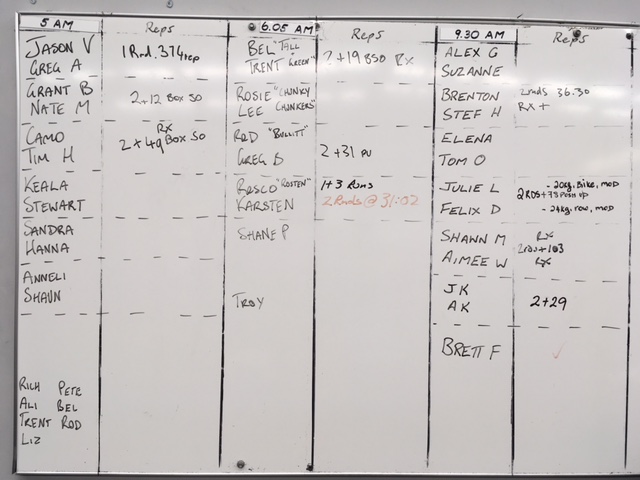 5 AM Reps
JASON V 1 Rnd. 374 rep
GREG A
GRANT B 2+12 BOX SO
NATE M
CAMO RX
TIM H 2+49 BOX SO
KEALA
STEWART
SANDRA
HANNA
ANNELI
SHAUN
RICH PETE
ALI BEL
TRENT ROD
LIZ
6.05 AM Reps
BEL "TALL
TRENT GREEN" 2+19 BSO RX
ROSIE "CHUNKY
LEE CHUNKERS"
ROD "BULLITT"
GREG B 2+31 PU
ROSCO "ROSTEN" 1+3 RUNS
KARSTEN 2 Rnds @ 31:02
SHANE P
TROY
9.30 AM Reps
ALEX G
SUZANNE
BRENTON 2rnds 36.30
STEF H RX +
ELENA
TOM O
JULIE L - 20kg, Bike, MOD
2 RDS + 73 PUSH UP
FELIX D - 24kg, row, MOD
SHAWN M RX
2rds + 103
AIMEE W RX
JK
AK 2+29
BRETT F ✓